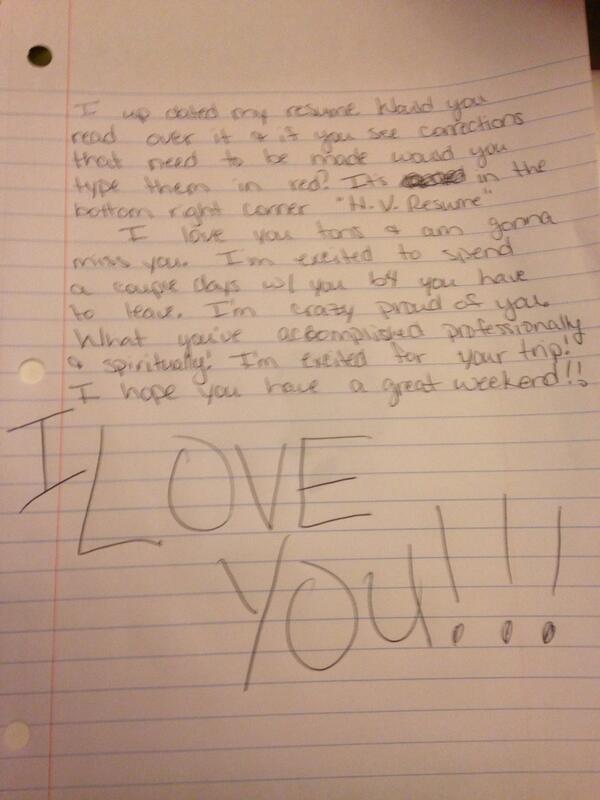 I up dated my resume. Would you
read over it & if you see corrections
that need to be made would you
type them in red? It's in the
bottom right corner "H.V. Resume"
I love you tons & am gonna
miss you. I'm excited to spend
a couple days w/ you b4 you have
to leave. I'm crazy proud of you.
What you've accomplished professionally
& spiritually! I'm excited for your trip!
I hope you have a great weekend!!
I LOVE
YOU!!!